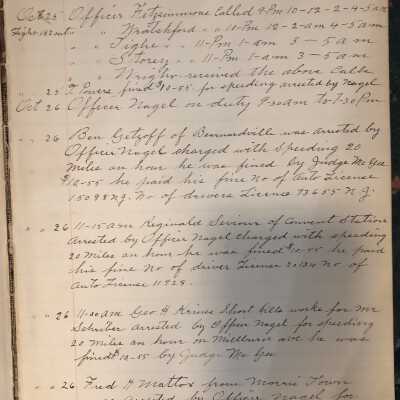 Oct 25 Officer Fitzsimmons Called 9-Pm 10-12-2-4-5am
" " Bratchford " 10Pm 12-2-am 4-5am
" " Tighe " 11-Pm 1-am 3-5 am
" " Storey " 11-Pm 1-am 3-5am
" " Wright received the above Calls
" 25 T Powers fined $10-55 for speeding arrested by Nagel
Oct 26 Officer Nagel on duty 9-30am to 7-30Pm
" 26 Ben Getzoff of Bernardsville was arrested by
Officer Nagel charged with Speeding 20
Miles an hour he was fined by Judge McGee
$10-55 he paid his fine No of Auto License
15098 NJ. No of drivers License 73655 N.J.
" " 26 11-15am Reginald Seviour of Convent Station
arrested by Officer Nagel charged with speeding
20 Miles an hour he was fined he paid
his fine No of driver License 20134 No of
Auto License 11928.
" " 26 11-30am Geo Short hills works for Mr
Schriber arrested by Officer Nagel for speeding
20 Miles an hour on Millburn ave he was
fined $10-55 by Judge McGee
" " 26 Fred H Mattox from Morris Town
was arrested by Officer Nagel for